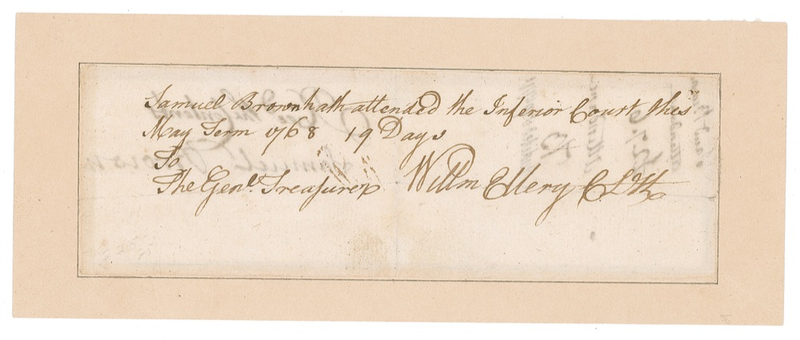 Samuel Brown hath attended the Inferior Court this
May Term 1768 19 Days
To
The Genl. Treasurer Willm Ellery Clk